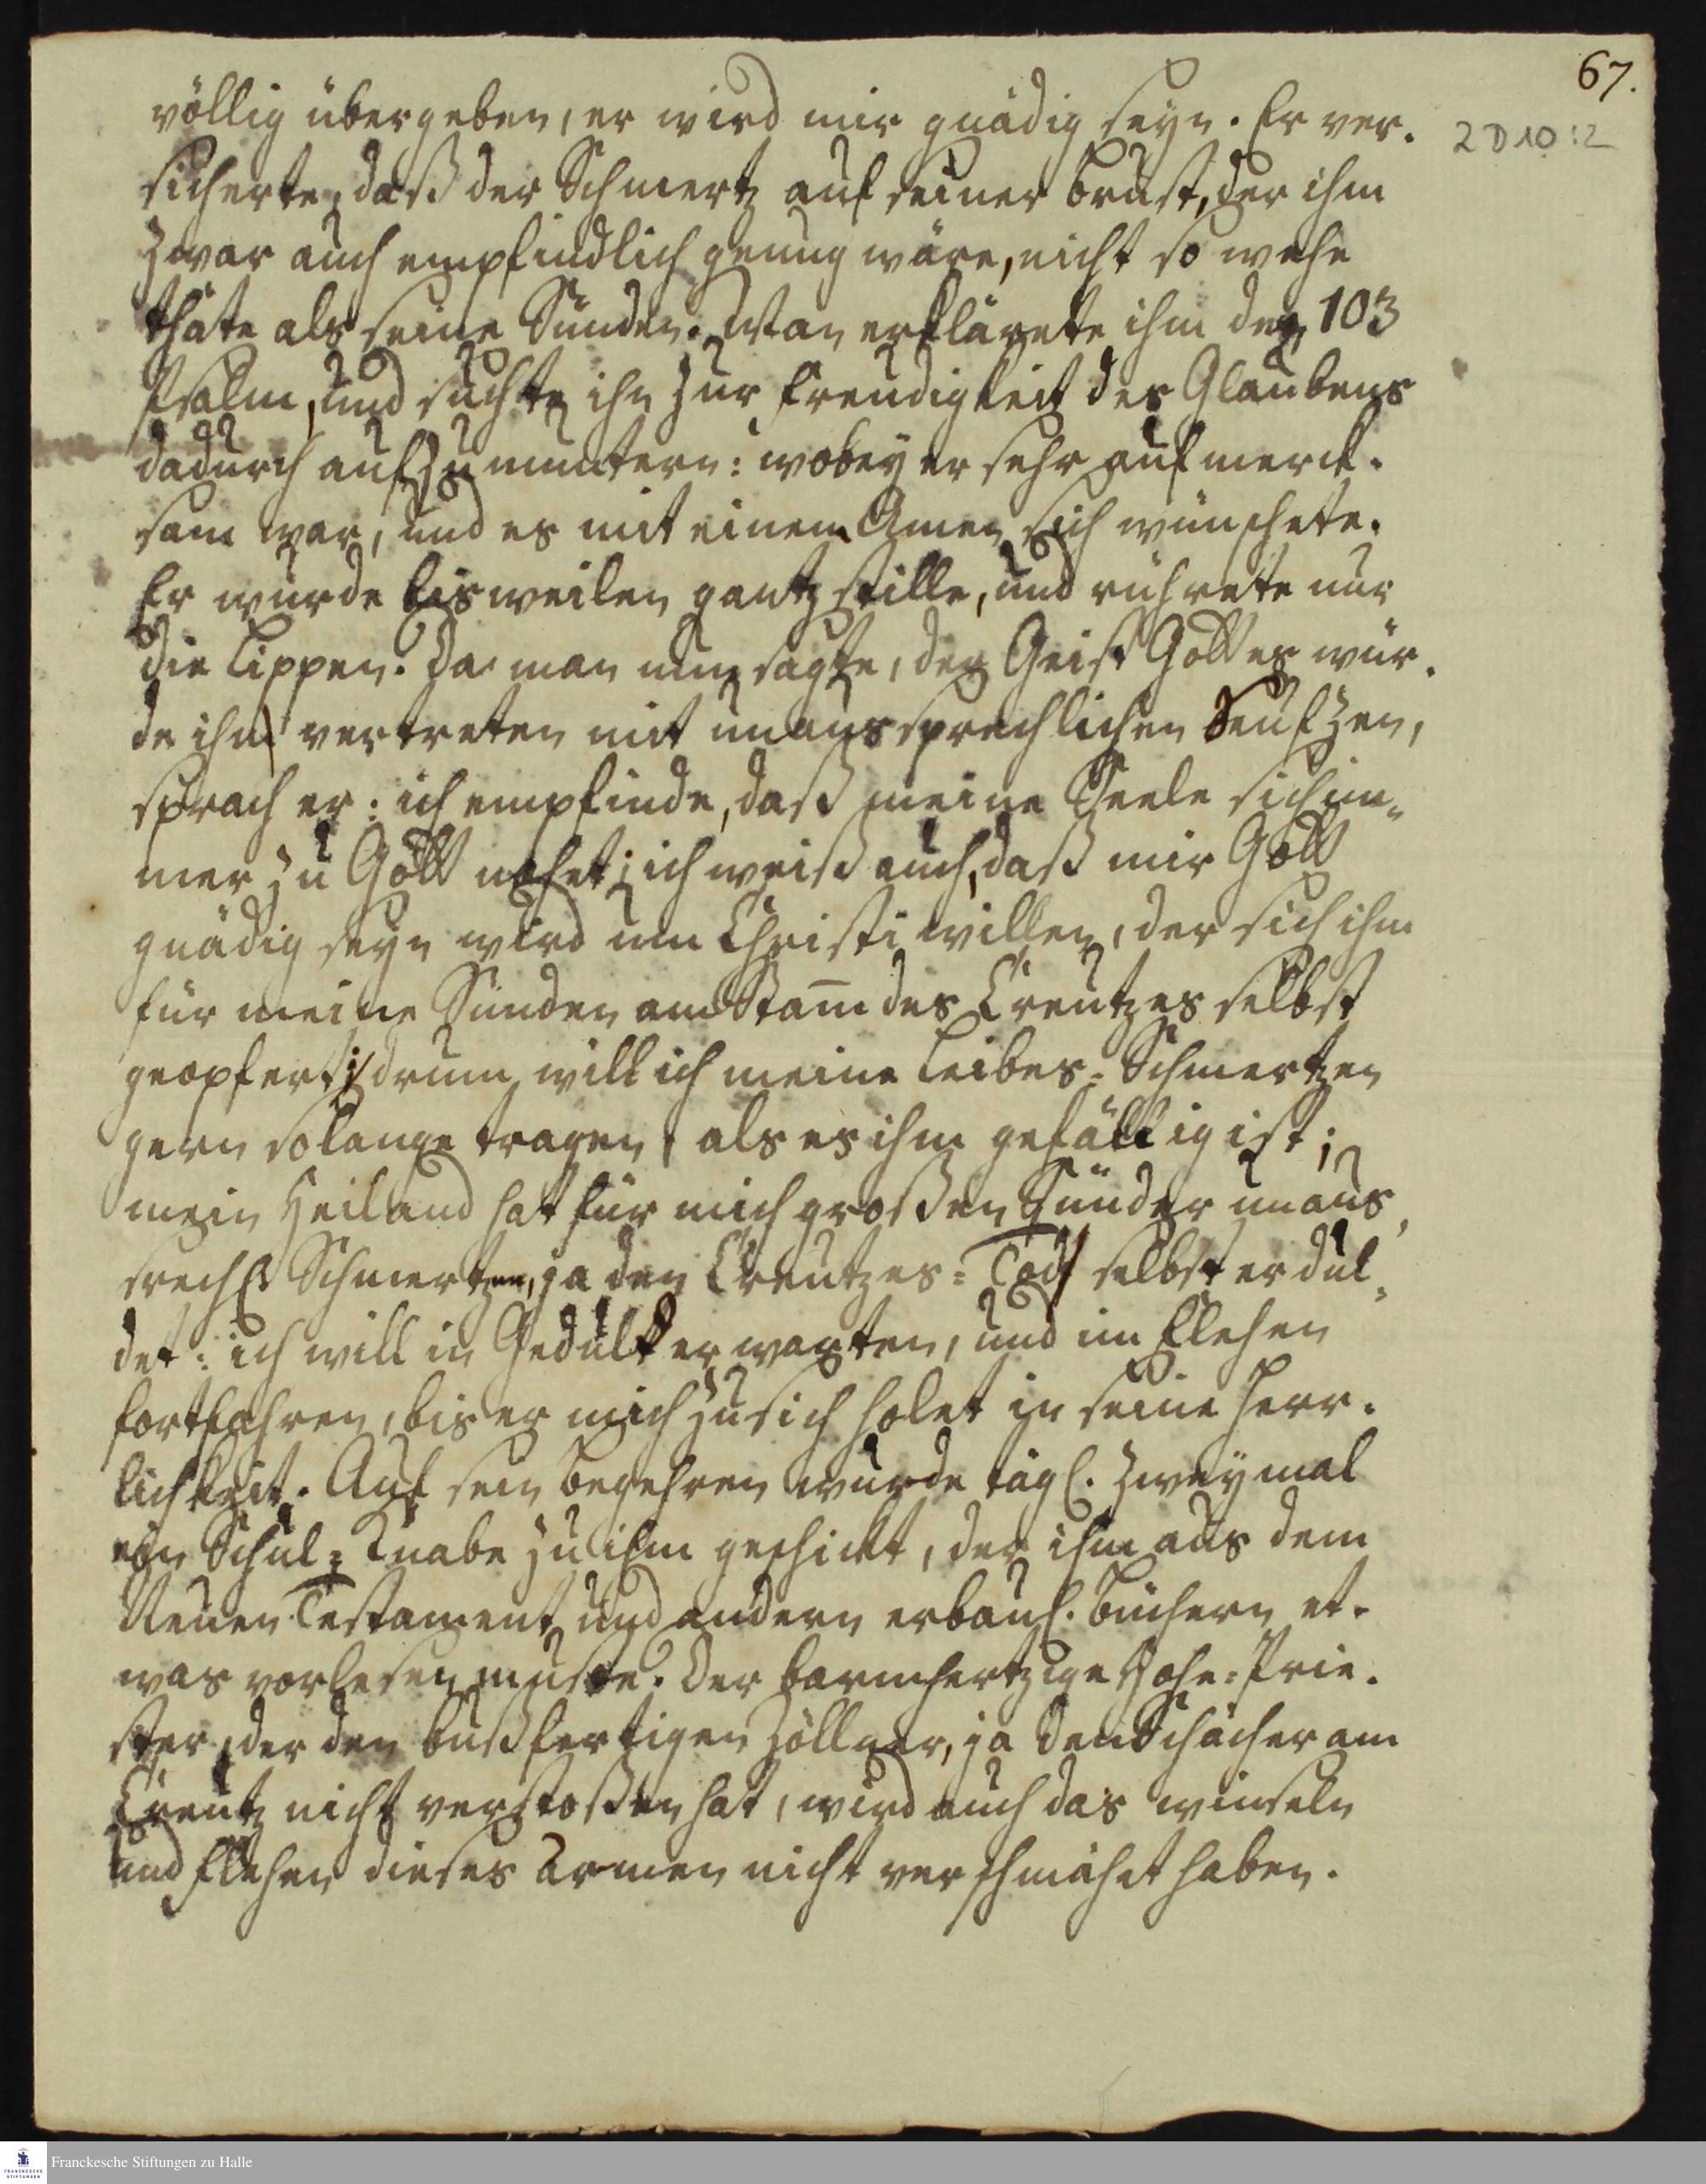 67.
völlig übergeben, er wird mir gnädig seyn. Er ver-
2 D 10 : 2
sicherte, daß der Schmertz auf seiner Brust, der ihm
zwar auch empfindlich genug wäre, nicht so wehe
thäte als seine Sünden. Man erklärete ihm den 103
Psalm, und suchte ihn zur Freudigkeit des Glaubens
dadurch aufzumuntern: wobey er sehr aufmerck-
sam war, und es mit einem Amen sich wünschete.
Er wurde bisweilen gantz stille, und rührete nur
die Lippen. Da man nun sagte, der Geist Gottes wür-
de ihn vertreten mit unaussprechlichen Seufzen,
sprach er: ich empfinde, daß meine Seele sich im-
mer zu Gott nahet; ich weiß auch, daß mir Gott
gnädig seyn wird um Christi willen, der sich ihm
für meine Sünden am Stam̅ des Creutzes selbst
geopfert; drum will ich meine Leibes-Schmertzen
gern so lange tragen, als es ihm gefällig ist;
mein Heiland hat für mich großen Sünder unaus-
srechl. Schmertzen, ja den Creutzes-Tod selbst erdul-
det: ich will in Gedult erwarten, und im Flehen
fortfahren, bis er mich zu sich holet in seine Herr-
lichkeit. Auf sein Begehren wurde tägl. zweymal
ein Schul-Knabe zu ihm geschickt, der ihm aus dem
Neuen Testament und andern erbaul. Büchern et-
was vorlesen muste. Der barmhertzige Hohe-Prie-
ster, der den bußfertigen Zöllner, ja den Schächer am
Creutz nicht verstoßen hat, wird auch das winseln
und flehen dieses Armen nicht verschmähet haben.
Franckesche Stiftungen zu Halle
FRANCKESCHE
STIFTUNGEN